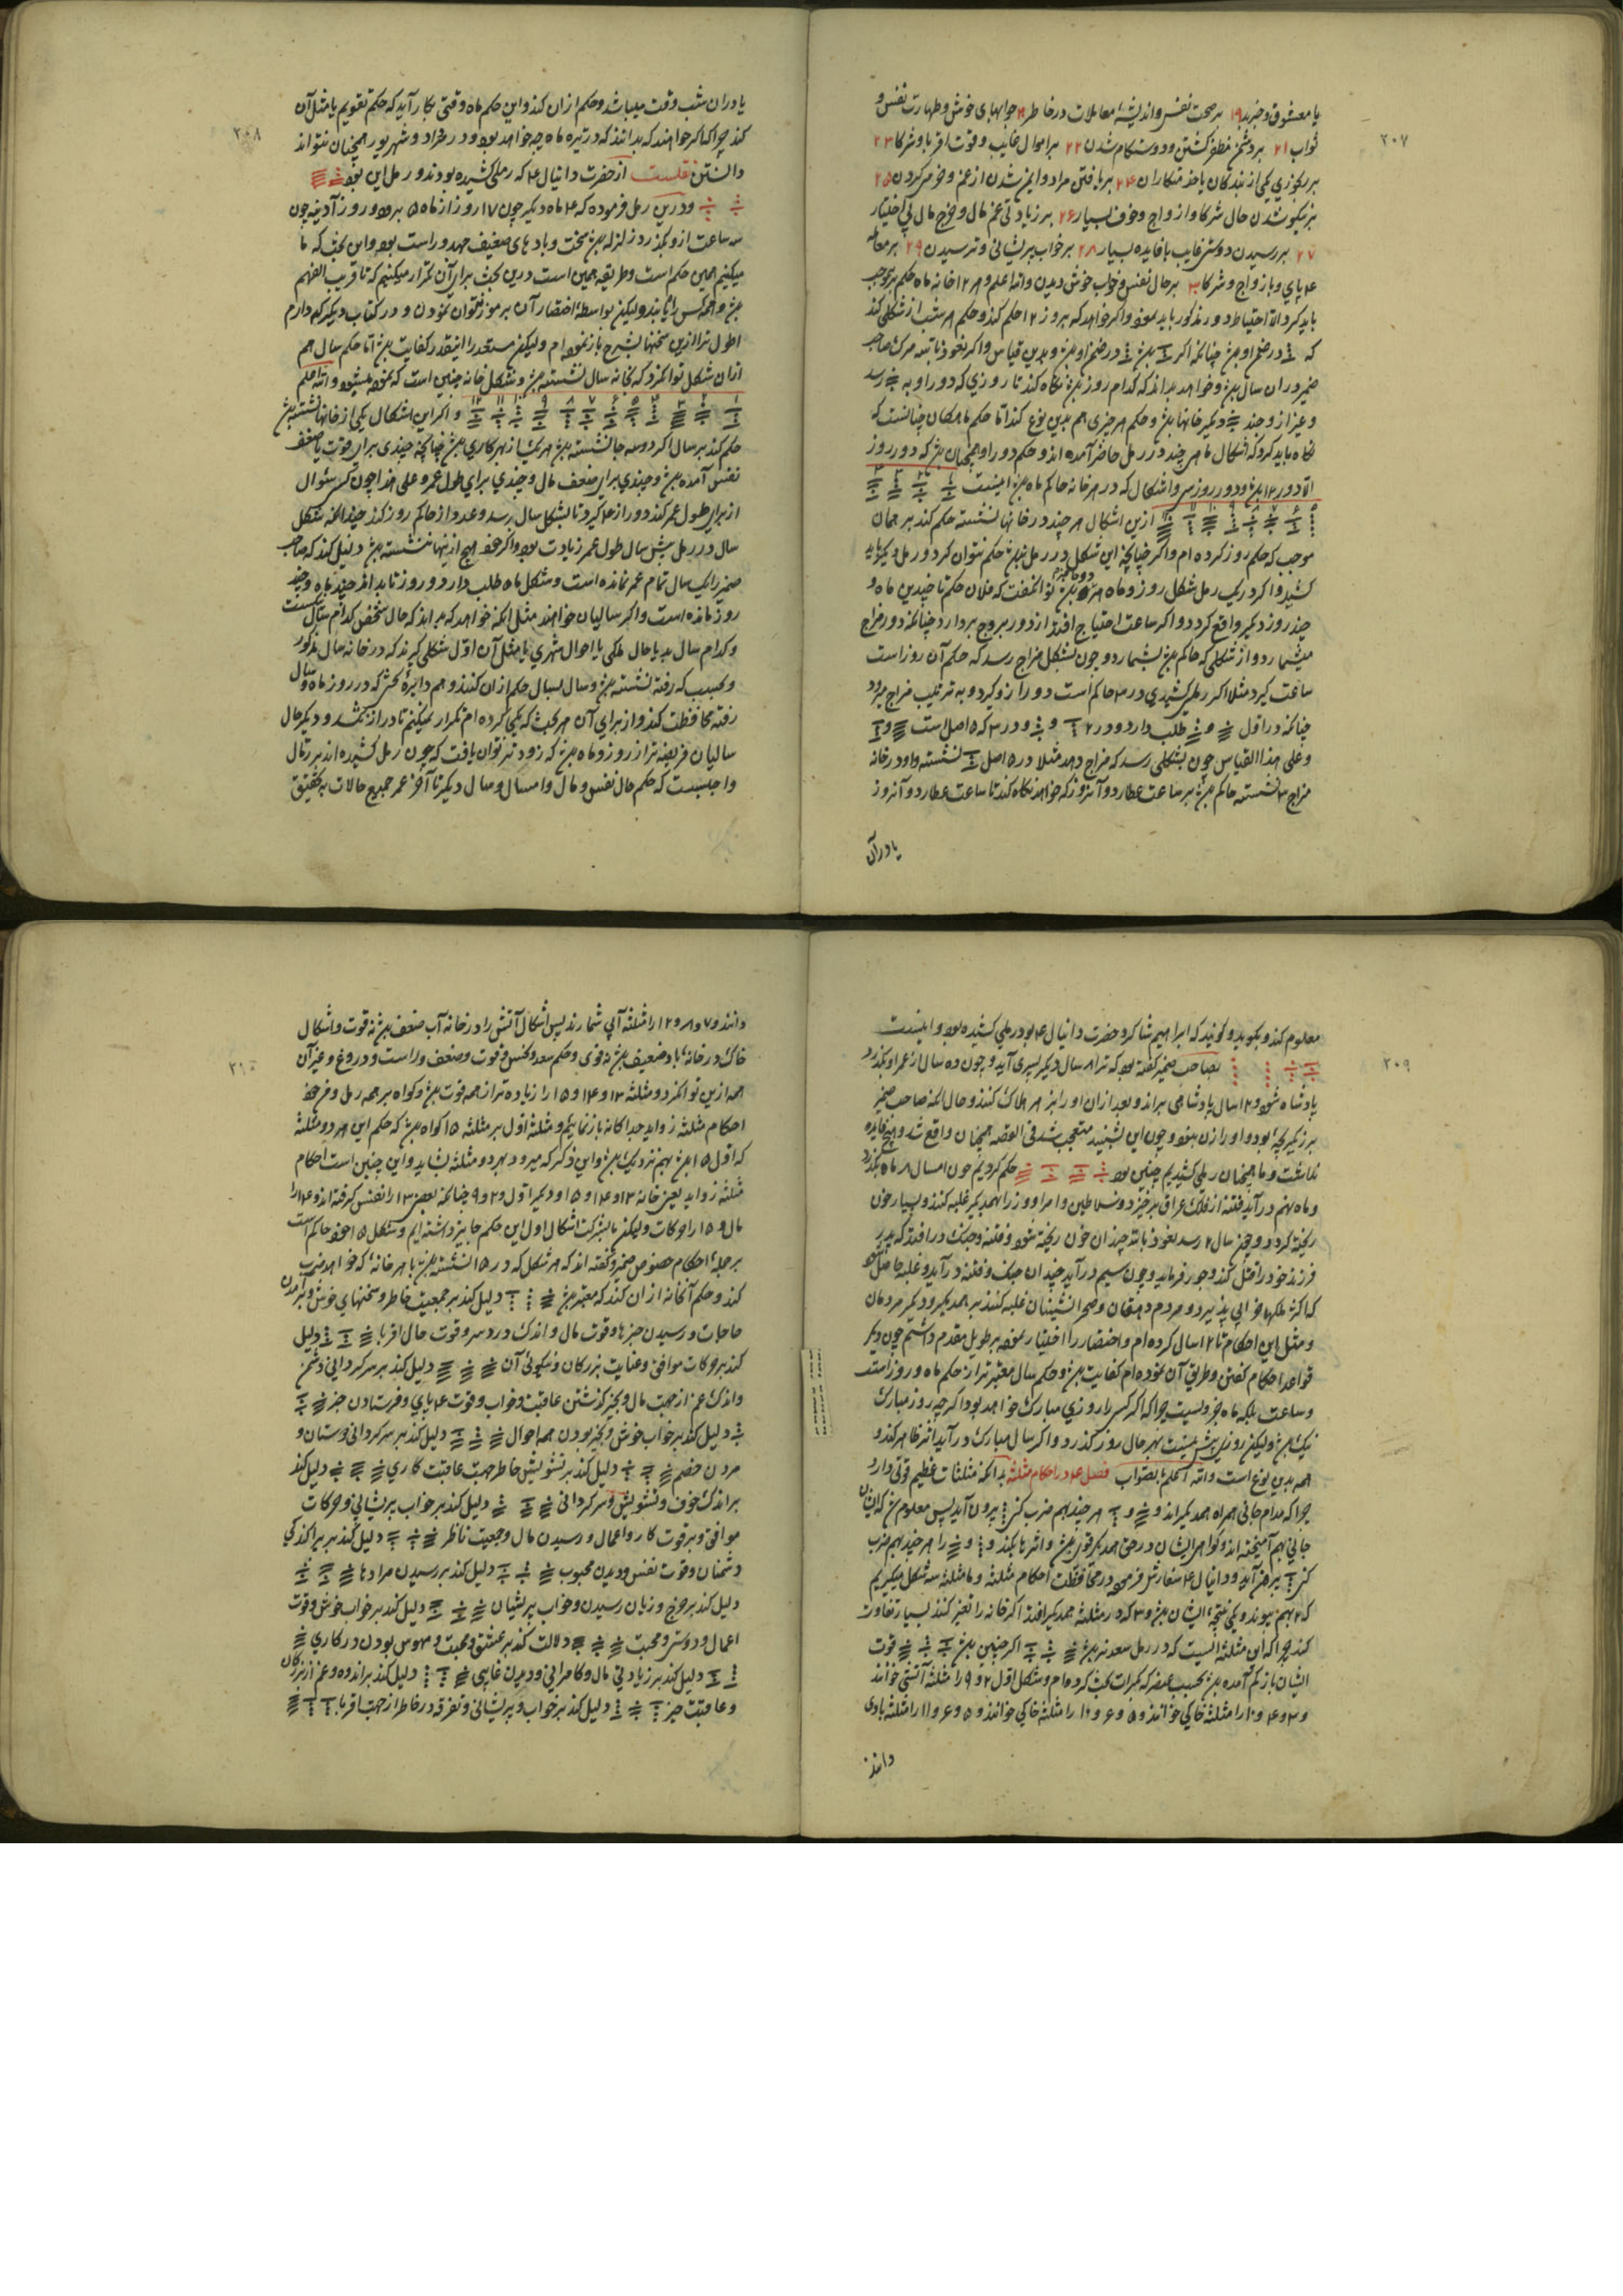 ۲۰۷
یا معشوق و خبر بد ۱۹ بر صحت نفس و اندیشهٔ معاملات در خاطر ۲۰ جوابهای خوش و طهارت نفس و
ثواب ۲۱ بر دشمن مظفر کشتن و دوستکام شدن ۲۲ بر اموال غایب و قوت اقربا و شرکا ۲۳
بر یکی از بندگان یا خدمتکاران ۲۴ بر یافتن مراد و ایمن شدن از غم و خرم کردن ۲۵
بر نیکو شدن حال شرکا و ازواج و خوف بسیار ۲۶ بر زیادتی غم مال و خرج مال بی اختیار
۲۷ بر رسیدن دوستی غایب با فایده بسیار ۲۸ بر خواب پریشانی و ترسیدن ۲۹ بر معامله
چهارپای و با ازواج و شرکا ۳۰ بر حال نفس و خواب خوش دیدن والله اعلم و هر ۱۲ خانه ماه حکم بدین موجب
باید کرد اما احتیاط دور مذکور باید نمود و اگر خواهد که بروز ۱۲ حکم کند و حکم هر شب از شکلی کند
که در ضمن او چنانکه اگر در ضمن او و بدین قیاس و اگر نعوذ بالله مرک صاحب
ضمیر در آن سال و خواهد بداند که کدام روز نگاه کند تا روزی که دور او به رسد
و غیر از و چند دیگر خانها و حکم هر چیزی هم بدین نوع کند اما حکم ماه کان چنانست که
نگاه باید کرد که اشکال ماه هر چند در رمل حاضر آمده اند و حکم دور او همچنان که دور روز
اما دور ۱۲ و دور روز سی و اشکال که در هر خانه حاکم ماه اینست
ازین اشکال هر چند در خانها نشسته حکم کند بر همان
موجب که حکم روز کرده ام و اگر چنانچه این شکل در رمل نباشد حکم نتوان کرد و رمل دیگر باید
کشید و اگر در یک رمل شکل روز و ماه هر دو حاضر توانکفت که فلان حکم تا چندین ماه و
چند روز دیگر واقع کردد و اگر ساعت احتیاج افتد از دور بروج بردارد چنانکه دور مزاج
میشمارد و از شکلی که حاکم بشمارد و چون بشکل مزاج رسد که حکم آن روز است
ساعت کیرد مثلا اگر رملی کشیدی در ۳ حاکم است دور از و کیرد و به ترتیب مزاج میرود
چنانکه در اول و طلب دارد و در ۲ و و در ۳ که ۵ اصل است و
و علی هذا القیاس چون بشکلی رسد که مزاج دهد مثلا در ۵ اصل نشسته و او در خانه
مزاج نشسته حاکم بر ساعت عطارد و آنروز که خواهد نگاه کند تا ساعت عطارد و آنروز
یا در آن
۲۰۸
یا در آن شب وقت میباشد و حکم از ان کند و این حکم ماه وقتی بکار آید که حکم تقویم یا مثل آن
کند چرا که اگر خواهند که بدانند که در تیره ماه چه خواهد بود و در خرداد و شهریور همچنان نتواند
دانستن از حضرت دانیال ع که رملی کشیده بودند و رمل این بود
و درین رمل فرموده که ۴ ماه دیگر چون ۱۷ روز از ماه ۵ برود و روز آدینه چون
سه ساعت از و بگذرد زلزله سخت و بادهای ضعیف جهد و راست بود و این بحث که ما
میکنیم همین حکم است و طریقه همین است درین بحث برای آن تکرار میکنیم که تا قریب الفهم
و همه کس را یابند و لیکن بواسطهٔ اختصار آن مرموز نتوان نمودن و در کتاب دیگر که دارم
اطول تر ازین سخنها بشرح باز نموده ام و لیکن مستعد را اینقدر کفایت اما حکم سال هم
از ان شکل توان کرد که بخانه سال نشسته و شکل خانه چنین است که نموده میشود والله اعلم
۱ ۲ ۳ ۴ ۵ ۶ ۷ ۸ ۹ ۱۰ ۱۱ ۱۲ و اگر این اشکال یکی از خانها نشسته
حکم کند بر سال اگر دو سه جا نشسته هر یک از بهر کاری چنانچه چندی برای قوت یا ضعف
نفس آمده و چندی برای ضعف مال و چندی برای طول عمر و علی هذا چون کسی سئوال
از برای طول عمر کند دور از ۴ کیرد تا بشکل سال رسد و عدد از حاکم روز کند چندانکه شکل
سال در رمل بیش سال طول عمر زیادت بود و اگر هیچ از اینها ننشسته دلیل کند که صاحب
ضمیر را یک سال تمام عمر نمانده است و شکل ماه طلب دارد و روز تا بداند چند ماه و چند
روز مانده است و اگر سالیان خواهند مثل آنکه خواهد که بداند که حال شخص کدام سال نیکست
و کدام سال بد یا حال ملکی یا احوال شهری یا مثل آن اول شکلی کیرند که در خانه سال مذکور
و بحسب که رفته نشسته و سال بسال حکم از ان کنند و هم دایره که در روز ماه و سال
رفته محافظت کند و از برای آن هر بحث که یکی کرده ام تکرار نمیکنیم تا دراز نکشد و دیگر حال
سالیان فریضه تر از روز و ماه که زود تر توان یافت که چون رمل کشیده اند بر رمال
واجبست که حکم حال نفس و مال و امسال و سال دیگر تا آخر عمر جمیع حالات به تحقیق
۲۰۹
معلوم کند و بکوید و کویند که ابراهیم شاکرد حضرت دانیال ع بود رملی کشیده بود و اینست
بصاحب ضمیر کفته بود که ترا هر سال دیگر پسری آید و چون ده سال از عمر او بگذرد
پادشاه شود و ۱۲ سال پادشاهی براند و بعد از ان او را بزهر هلاک کنند و حال آنکه صاحب ضمیر
برزیگر بچه بود و او را زن نبود و چون این بشنید متعجب شد فی القصه همچنان واقع شد و هیچ فایده
نداشت و ما همچنان رملی کشیدیم چنین بود حکم کردیم چون امسال ۸ ماه بگذرد
و ماه نهم در آید فتنه از ملک عراق برخیزد و سلاطین و امرا و وزرا بهمدیگر غلبه کنند و بسیار خون
ریخته کردد و چون سال ۲ رسد نعوذ بالله چندان خون ریخته شود و فتنه و جنک درافتد که پدر
فرزند خود را قتل کند و جور فرماید و چون سیم درآید چندان جنک و فتنه درآید و غلبه حاصل شود
که اکثر ملکها خرابی پذیرد و مردم دهقان و صحرا نشینان غلبه کنند بر همدیگر و دیگر مردمان
و مثل این احکام تا ۱۲ سالی کرده ام و اختصار را اختیار نموده بر طویل مقدم داشتیم چون دیگر
قواعد احکام کفتن و طریق آن نموده ام کفایت و حکم سال معتبر تر از حکم ماه و روز است
و ساعت بلکه ماه جزویست چرا که اگر کسی را روزی مبارک خواهد بود اگر چه روز مبارک
نیک و لیکن روزی بیش نیست بهر حال روز گذرد و اگر سال مبارک درآید اثر ظاهر کند و
همه بدین نوع است والله اعلم بالصواب فصل ۴ در احکام مثلثه بدانکه مثلثات عظیم قوتی دارد
چرا که مدام جائی همراه همدیگراند و و هر چند بهم ضرب کنی بیرون آید پس معلوم که ایشان
جائی بهم آمیخته اند و کواهی ایشان در حق همدیگر قوی و اثرها بکند و و را هر چند بهم ضرب
کنی بیرون آید و دانیال ع سفارش فرموده در محافظت احکام مثلثه و ما مثلثه سه شکل میکیریم
که ۲ بهم پیوند و یکی نتیجهٔ ایشان و ۳ که در مثلثه همدیگر افتد اگر خانه را تغیر کند بسیار تفاوت
کند چرا که این مثلثه ایست که در رمل سعد اگر چنین قوت
ایشان باز کم آمده بحسب عنصر که بکرات بحث کرده ام و شکل اول ۲ و ۹ را مثلثهٔ آتشی خوانند
و ۳ و ۴ و ۱۰ را مثلثهٔ خاکی خوانند و ۵ و ۶ و ۱۱ را مثلثه بادی
دانند
۲۱۰
دانند و ۷ و ۸ و ۱۲ را مثلثهٔ آبی شمارند پس اشکال آتشی را در خانه آب ضعف نه قوت و اشکال
خاک در خانهٔ باد ضعیف نه قوی و حکم سعد و نحس و قوت و ضعف و راست و دروغ و غیر آن
همه ازین توان کرد و مثلثه ۱۳ و ۱۴ و ۱۵ را زیاده تر از همه قوت و کواه بر همه رمل و فرح خود
احکام مثلثه زواید جداکانه باز نمایم و مثلثه اول بر مثلثه ۱۵ کواه که حکم این هر دو مثلثه
که اول ۱۵ بهم نزدیک و این ذکر که میرود بهر دو مثلثه بشاید و این چنین است احکام
مثلثه زواید یعنی خانه ۱۳ و ۱۴ و ۱۵ و دیگر اول و ۲ و ۹ چنانکه بعضی ۱۳ را نفس گرفته اند و ۱۴ را
مال و ۱۵ را حرکات و لیکن بشرکت اشکال اول این حکم جایز داشته ایم و شکل ۱۵ خود حاکم است
بر جملهٔ احکام خصوص ضمیر و کفته اند که هر شکل که در ۱۵ نشسته با هر خانهٔ که خواهد ضرب
کند و حکم آنخانه از ان کند که معتبر دلیل کند بر جمعیت خاطر و سخنهای خوش و برآمدن
حاجات و رسیدن خبرها و قوت مال و اندک دردسر و قوت حال اقربا دلیل
کند بر حرکات موافق و عنایت بزرکان و نیکوئی آن دلیل کند بر سرکردانی دشمن
و اندک غم از جهت مال و بخیر کذشتن عاقبت و خواب و قوت چهارپای و فرستادن خبر
دلیل کند بر خواب خوش و بخیر بودن همه احوال دلیل کند بر سرکردانی دوستان و
مردن خصم دلیل کند بر تشویش خاطر جهت عاقبت کاری دلیل کند
بر اندک خوف و تشویش و سرکردانی دلیل کند بر خواب پریشانی و حرکات
موافق و بر قوت کار و اعمال و رسیدن مال و جمعیت خاطر دلیل کند بر پراکندکی
دشمنان و قوت نفس و دیدن محبوب دلیل کند بر رسیدن مرادها
دلیل کند بر خرج و زیان رسیدن و خواب پریشان دلیل کند بر خواب خوش و قوت
اعمال و دوستی و محبت دلالت کند بر عشق و محبت و مهوس بودن در کاری
دلیل کند بر زیادتی مال و کامرانی و دیدن غایبی دلیل کند بر اندوه و غم از بزرکان
و عاقبت خیر دلیل کند بر خواب و پریشانی و تفرقه در خاطر از جهت اقربا